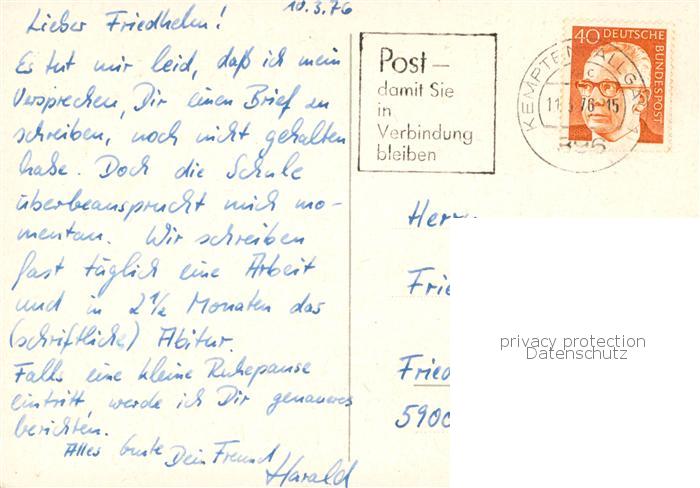 10.3.76
Lieber Friedhelm!
Es tut mir leid, daß ich mein
Versprechen, Dir einen Brief zu
schreiben, noch nicht gehalten
habe. Doch die Schule
überbeansprucht mich mo-
mentan. Wir schreiben
fast täglich eine Arbeit
und in 2 1/2 Monaten das
(schriftliche) Abitur.
Falls eine kleine Ruhepause
eintritt, werde ich Dir genaueres
berichten.
Alles Gute
Dein Freund
Harald
Post –
damit Sie
in
Verbindung
bleiben
KEMPTEN (ALLGÄU) 1
c
11.3.76-15
896
40 DEUTSCHE
BUNDESPOST
Herrn
Frie
Fried
5900
privacy protection
Datenschutz